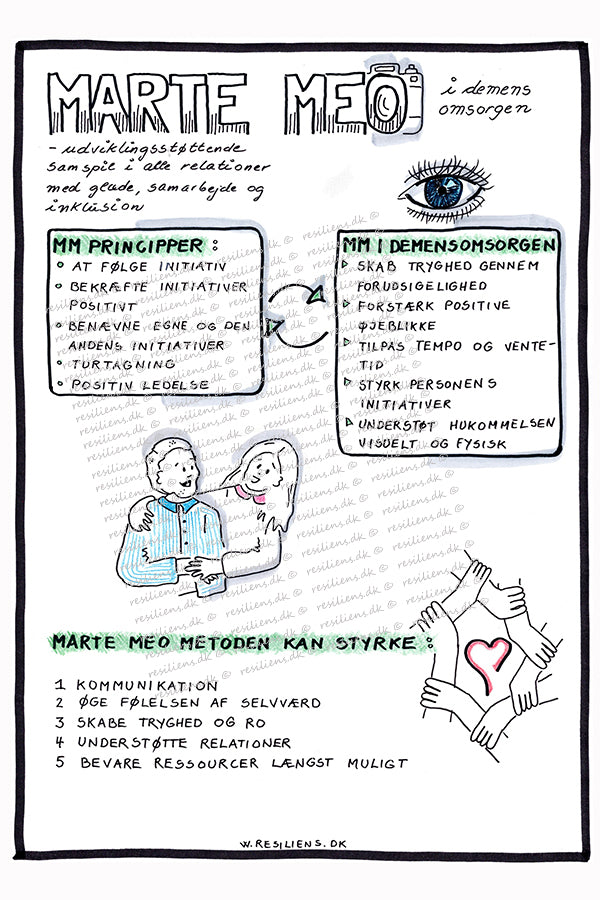 MARTE MEO
i demens
omsorgen
- udviklingsstøttende
samspil i alle relationer
med glæde, samarbejde og
inklusion
MM PRINCIPPER :
AT FØLGE INITIATIV
BEKRÆFTE INITIATIVER
POSITIVT
BENÆVNE EGNE OG DEN
ANDENS INITIATIVER
TURTAGNING
POSITIV LEDELSE
MM I DEMENSOMSORGEN
SKAB TRYGHED GENNEM
FORUDSIGELIGHED
FORSTÆRK POSITIVE
ØJEBLIKKE
TILPAS TEMPO OG VENTE-
TID
STYRK PERSONENS
INITIATIVER
UNDERSTØT HUKOMMELSEN
VISUELT OG FYSISK
resiliens.dk ©
MARTE MEO METODEN KAN STYRKE :
1 KOMMUNIKATION
2 ØGE FØLELSEN AF SELVVÆRD
3 SKABE TRYGHED OG RO
4 UNDERSTØTTE RELATIONER
5 BEVARE RESSOURCER LÆNGST MULIGT
W.RESILIENS.DK